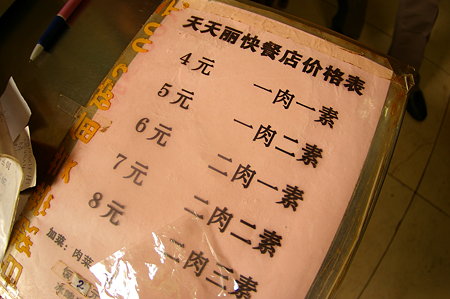 天天丽快餐店价格表
4元 一肉一素
5元 一肉二素
6元 二肉一素
7元 二肉二素
8元 二肉三素
加菜:肉菜